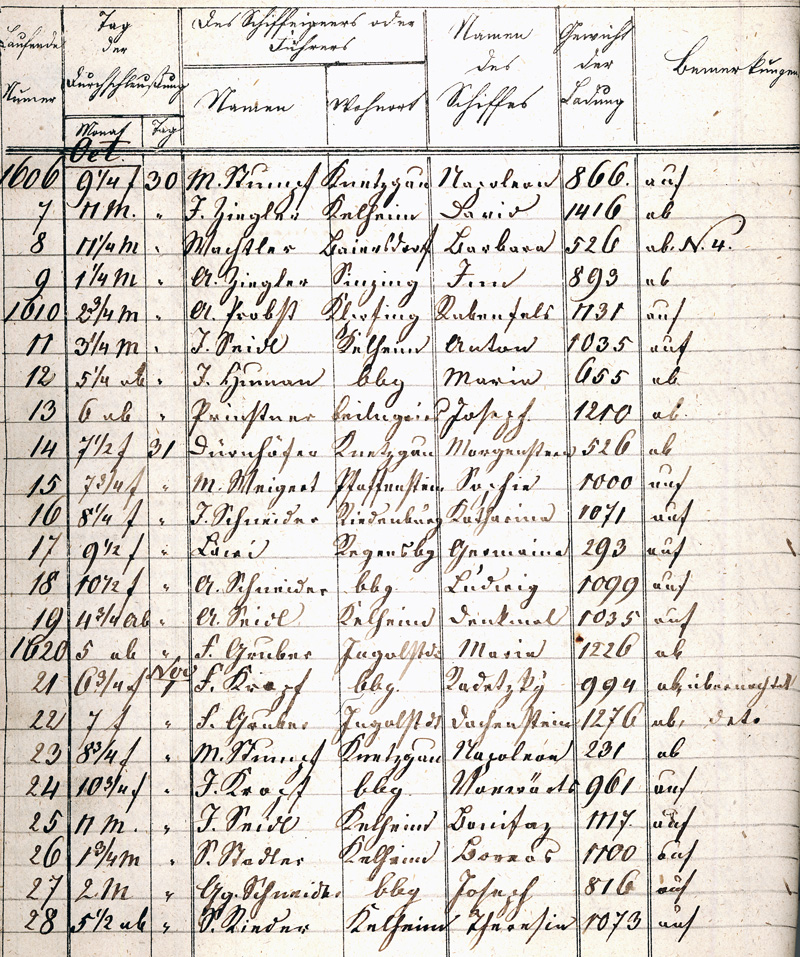 Laufende Numer | Tag der Durchschleußung | Des Schiffeigners oder Führers | Namen des Schiffes | Gewicht der Ladung | Bemerkungen
Monat | Tag | Namen | Wohnort
Oct.
1606 9 1/4 f 30 M. Stumpf Knetzgau Napoleon 866. auf
7 11 M. " J. Ziegler Kelheim David 1416 ab
8 11 1/4 M " Wachtler Baiersdorf Barbara 526 ab. N. 4.
9 1 1/4 M " A. Ziegler Sinzing Inn 893 ab
1610 2 3/4 M " A. Probst Rabenfels 1131 auf
11 3 1/4 M " J. Seidl Kelheim Anton 1035 auf
12 5 1/4 ab " J. bbg Maria 655 ab
13 6 ab " Joseph 1210 ab
14 7 1/2 f 31 Dürnhöfer Knetzgau Morgenstern 526 ab
15 7 3/4 f " M. Weigert Pfaffenstein Sophie 1000 auf
16 8 1/4 f " J. Schneider Riedenburg Katharina 1071 auf
17 9 1/2 f " Regensbg Germania 293 auf
18 10 1/2 f " A. Schneider bbg. Ludwig 1099 auf
19 4 3/4 ab " A. Seidl Kelheim Denkmal 1035 auf
1620 5 ab " F. Gruber Ingolstdt Maria 1226 ab
Nov
21 6 3/4 f 1 F. Kropf bbg. Radetzky 994 ab, übernachtet
22 7 f " F. Gruber Ingolstdt Dachenstein 1276 ab, deto
23 8 3/4 f " M. Stumpf Knetzgau Napoleon 231 ab
24 10 3/4 f " J. Kropf bbg. Vorwärts 961 auf
25 11 M. " J. Seidl Kelheim Bonifaz 1117. auf
26 1 3/4 M " S. Stadler Kelheim Boreas 1100 auf
27 2 M " Gg. Schneider bbg Joseph 816 auf
28 5 1/2 ab " S. Rieder Kelheim Theresia 1073 auf